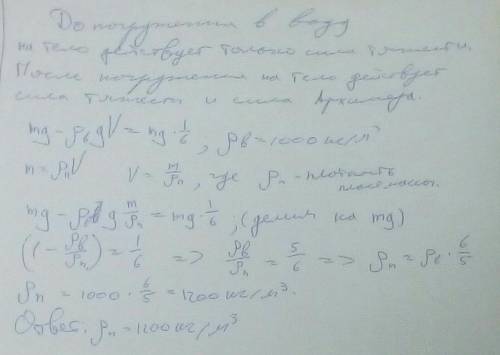 До погружения в воду
на тело действует только сила тяжести.
После погружения на тело действует
сила тяжести и сила Архимеда.
mg - ρв gV = mg · 1/6 ; ρв = 1000 кг/м³
m = ρп V   V = m/ρп , где ρп - плотность пластмассы.
mg - ρв g m/ρп = mg · 1/6 ; (делим на mg)
(1 - ρв/ρп) = 1/6 => ρв/ρп = 5/6 => ρп = ρв · 6/5
ρп = 1000 · 6/5 = 1200 кг/м³.
Ответ. ρп = 1200 кг/м³